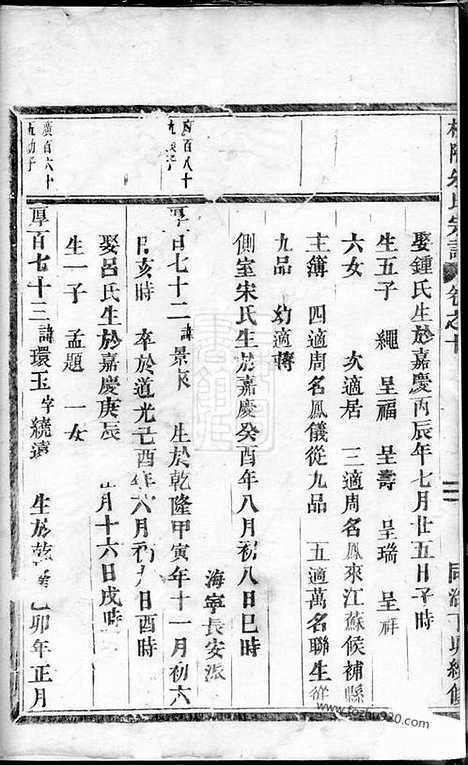 氏宗譜 卷之十
娶鍾氏生於嘉慶丙辰年七月廿五日子時
生五子 繩 呈福 呈壽 呈瑞 呈祥
六女 次適居 三適周名鳳來江蘇候補縣
主簿 四適周名鳳儀從九品 五適萬名聯生從
九品 幼適蔣
側室宋氏生於嘉慶癸酉年八月初八日巳時
海寧長安派
百八十
厚百七十二 諱景 生於乾隆甲寅年十一月初六
日亥時 卒於道光己酉年六月初九日酉時
娶呂氏生於嘉慶庚辰 月十六日戌時
生一子 孟題 一女
廣百六十
九幼子
厚百七十三 諱環玉 字繞遠 生於乾隆乙卯年正月
www.fozhu920.com